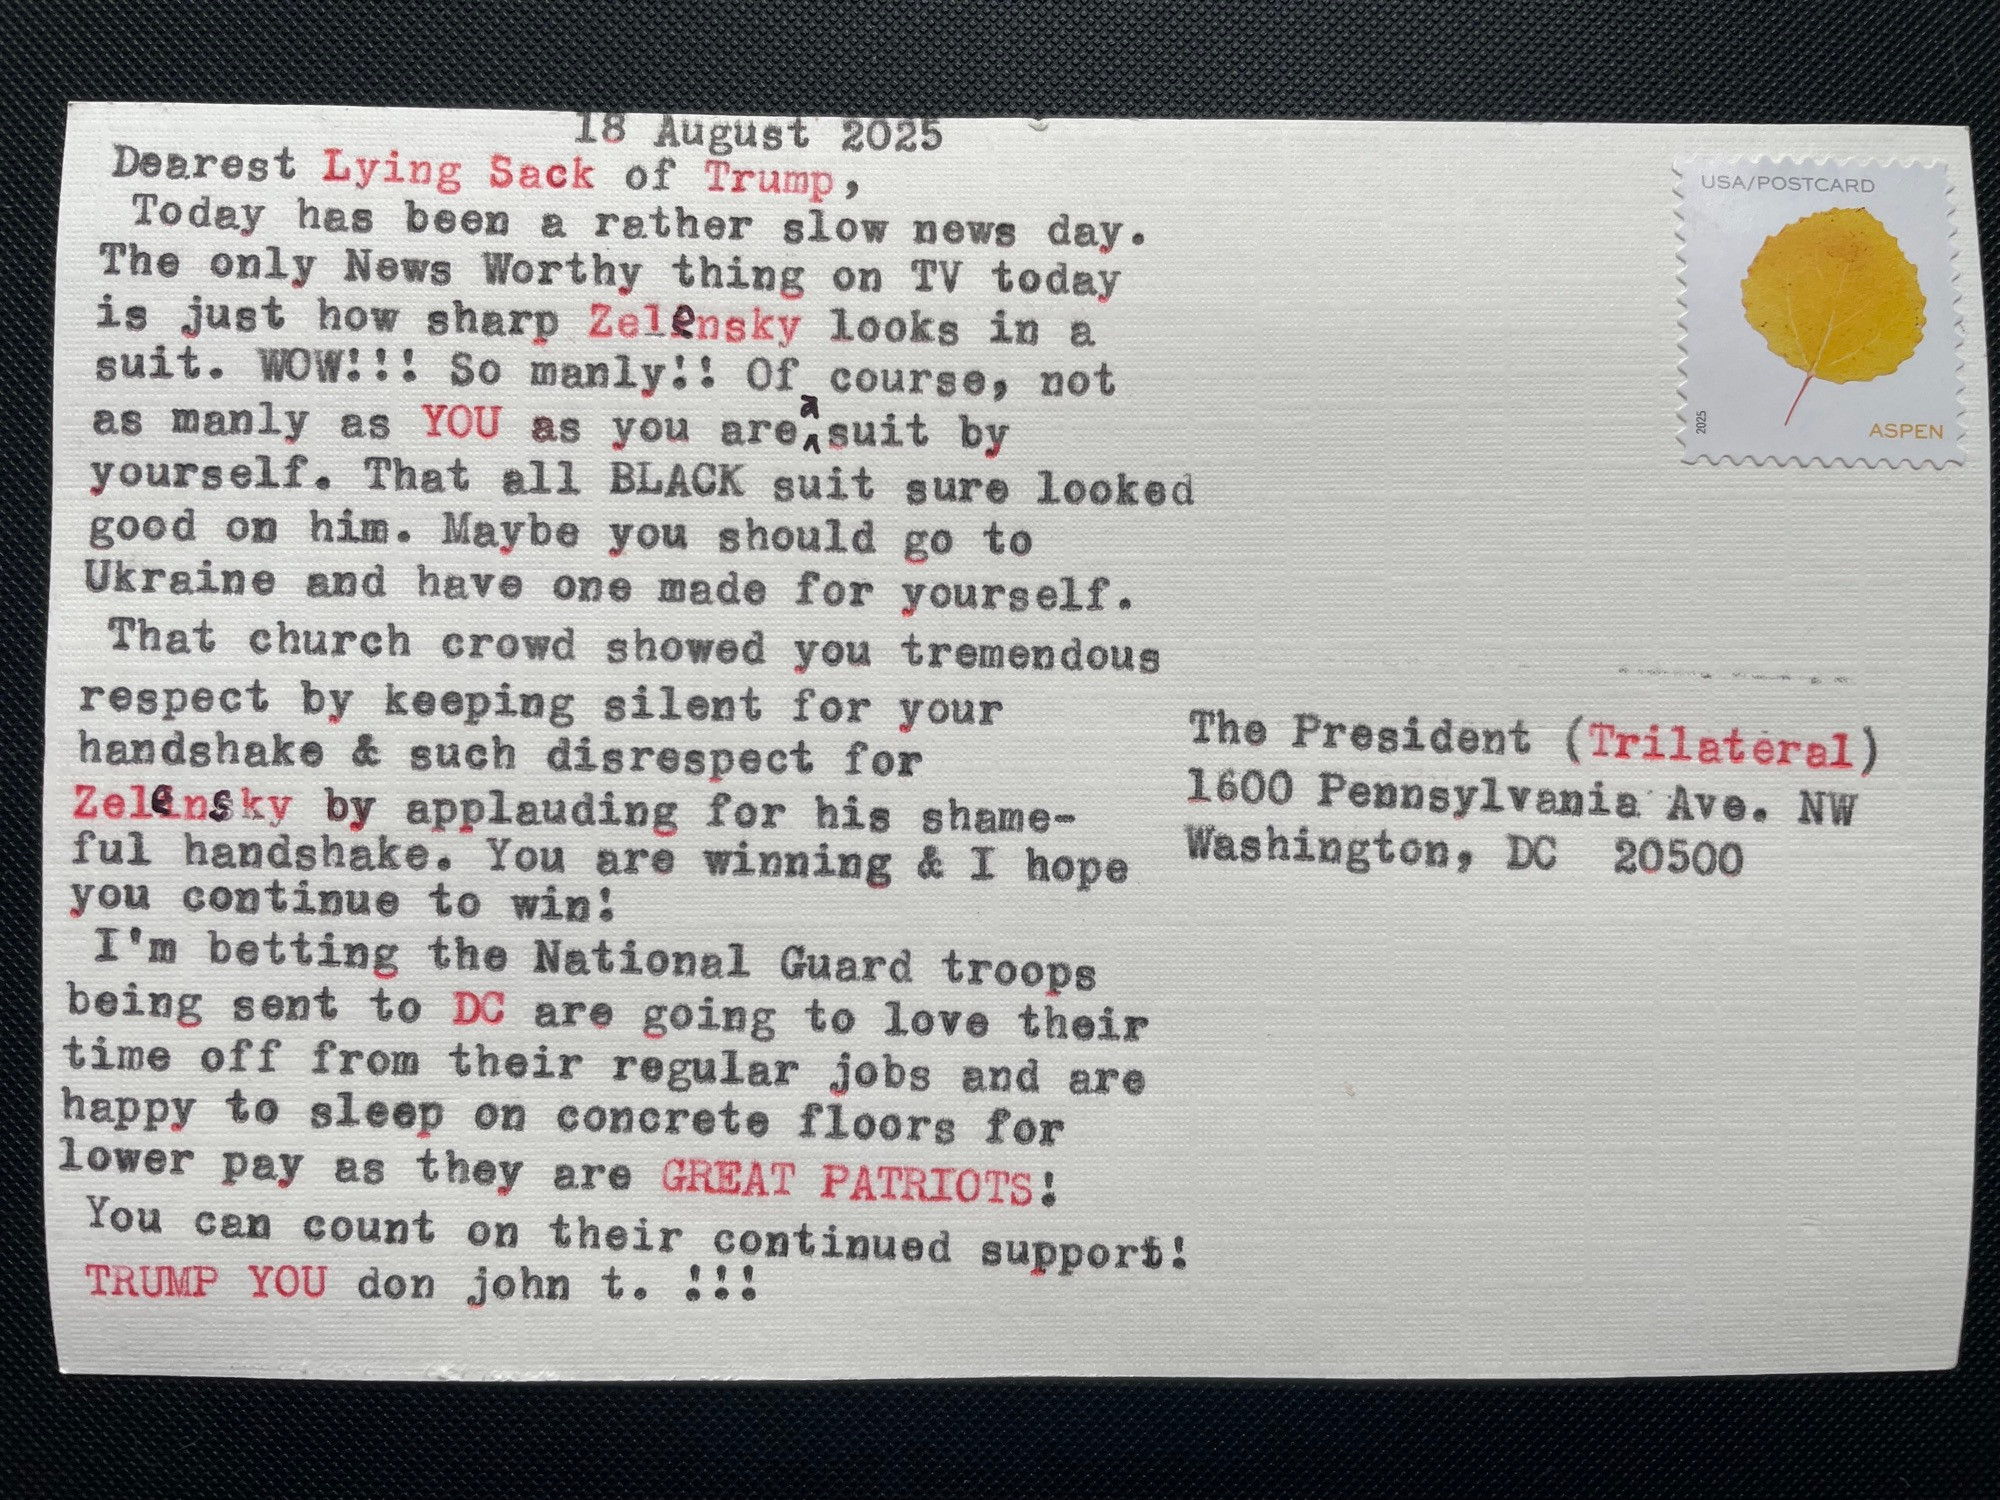 18 August 2025
Dearest Lying Sack of Trump,
Today has been a rather slow news day.
The only News Worthy thing on TV today
is just how sharp Zelensky looks in a
suit. WOW!!! So manly!! Of course, not
as manly as YOU as you are a suit by
yourself. That all BLACK suit sure looked
good on him. Maybe you should go to
Ukraine and have one made for yourself.
That church crowd showed you tremendous
respect by keeping silent for your
handshake & such disrespect for
Zelensky by applauding for his shame-
ful handshake. You are winning & I hope
you continue to win!
I'm betting the National Guard troops
being sent to DC are going to love their
time off from their regular jobs and are
happy to sleep on concrete floors for
lower pay as they are GREAT PATRIOTS!
You can count on their continued support!
TRUMP YOU don john t. !!!
USA/POSTCARD
2025
ASPEN
The President (Trilateral)
1600 Pennsylvania Ave. NW
Washington, DC 20500